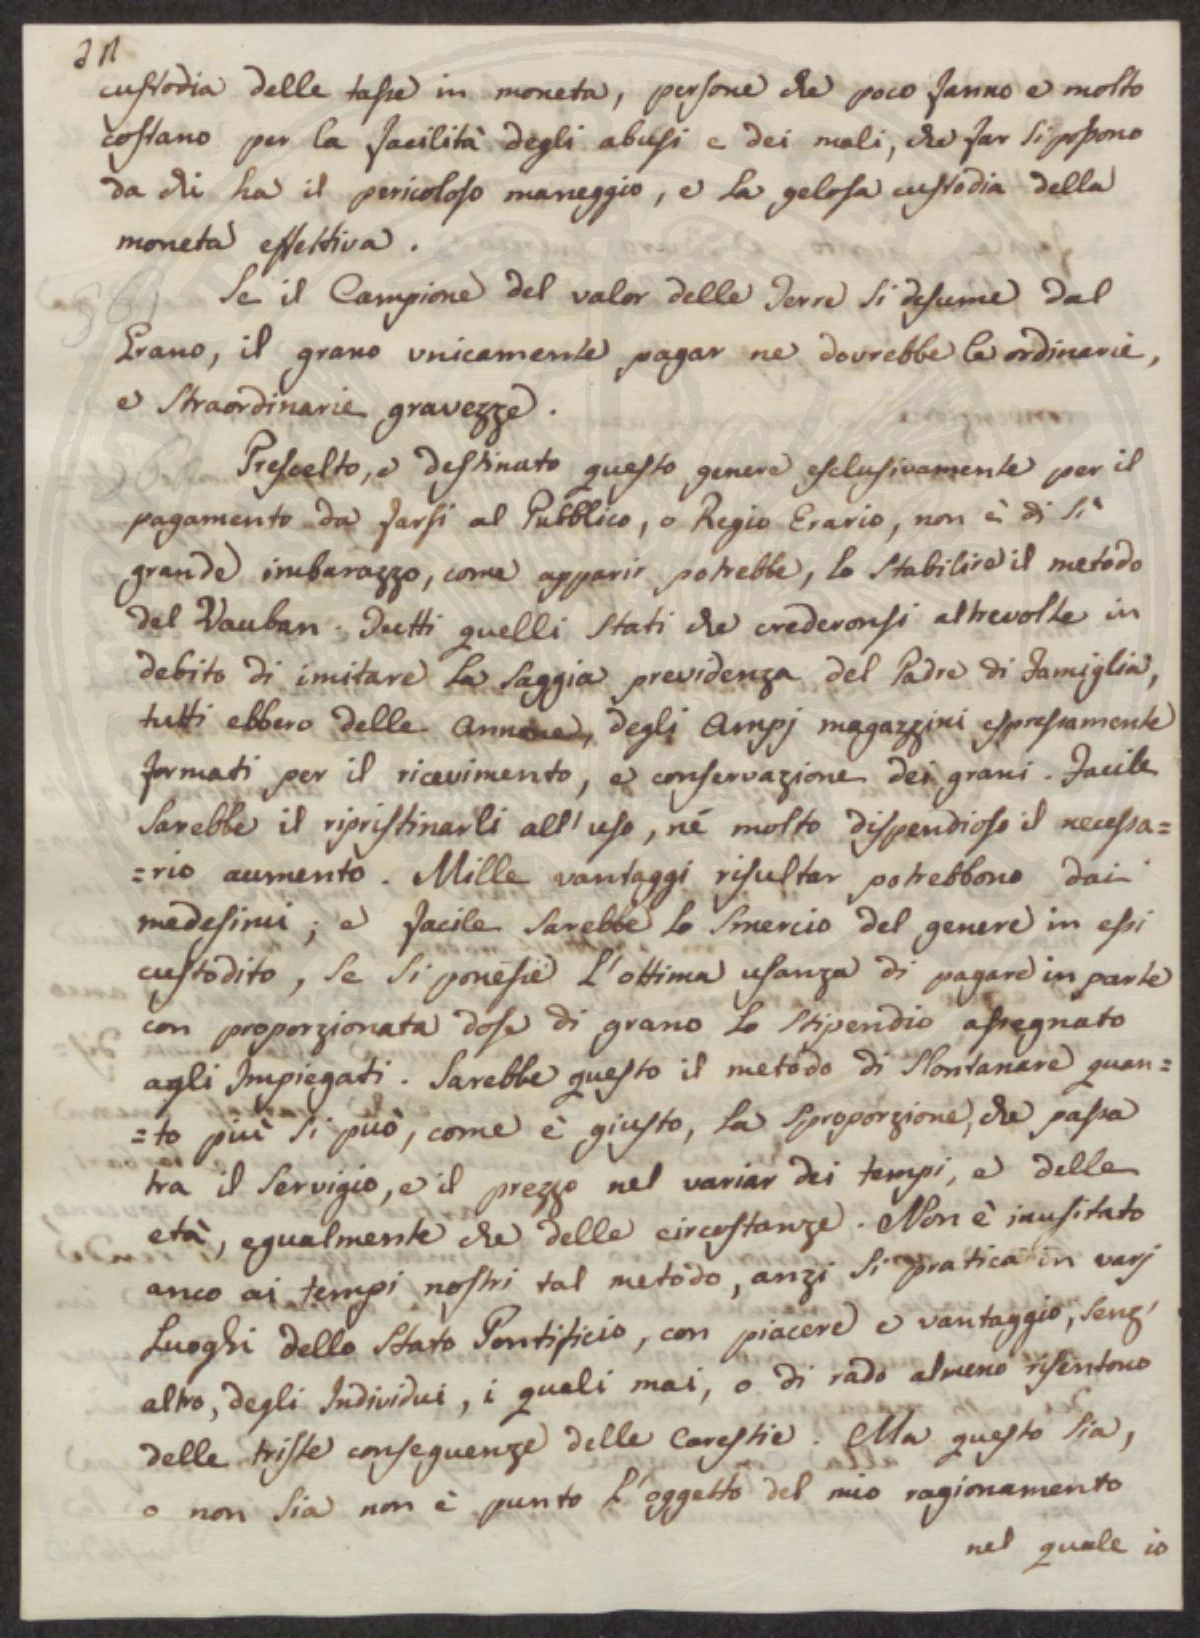 custodia delle tasse in moneta, persone che poco fanno e molto
costano per la facilità degli abusi e dei mali, che far si possono
da chi ha il pericoloso maneggio, e la gelosa custodia della
moneta effettiva.
Se il Campione del valor delle Terre si desume dal
Grano, il grano unicamente pagar ne dovrebbe le ordinarie,
e straordinarie gravezze.
Prescelto, e destinato questo genere esclusivamente per il
pagamento da farsi al Pubblico, o Regio Erario, non è di sì
grande imbarazzo, come apparir potrebbe, lo stabilire il metodo
del Vauban. Tutti quelli Stati che crederonsi altrevolte in
debito di imitare la saggia previdenza del Padre di Famiglia,
tutti ebbero delle Annone, degli Ampj magazzini espressamente
formati per il ricevimento, e conservazione dei grani. Facile
sarebbe il ripristinarli all'uso, né molto dispendioso il necessa=
=rio aumento. Mille vantaggi risultar potrebbono dai
medesimi; e facile sarebbe lo smercio del genere in essi
custodito, se si ponesse l'ottima usanza di pagare in parte
con proporzionata dose di grano lo stipendio assegnato
agli Impiegati. Sarebbe questo il metodo di slontanare quan=
=to più si può, come è giusto, la sproporzione, che passa
tra il servigio, e il prezzo nel variar dei tempi, e delle
età, egualmente che delle circostanze. Non è inusitato
anco ai tempi nostri tal metodo, anzi si pratica in varj
Luoghi dello Stato Pontificio, con piacere e vantaggio, senz'
altro, degli Individui, i quali mai, o di rado almeno risentono
delle triste conseguenze delle Carestie. Ma questo sia,
o non sia non è punto l'oggetto del mio ragionamento
nel quale io